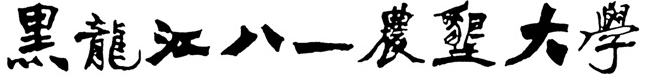 黑龍江八一農墾大學